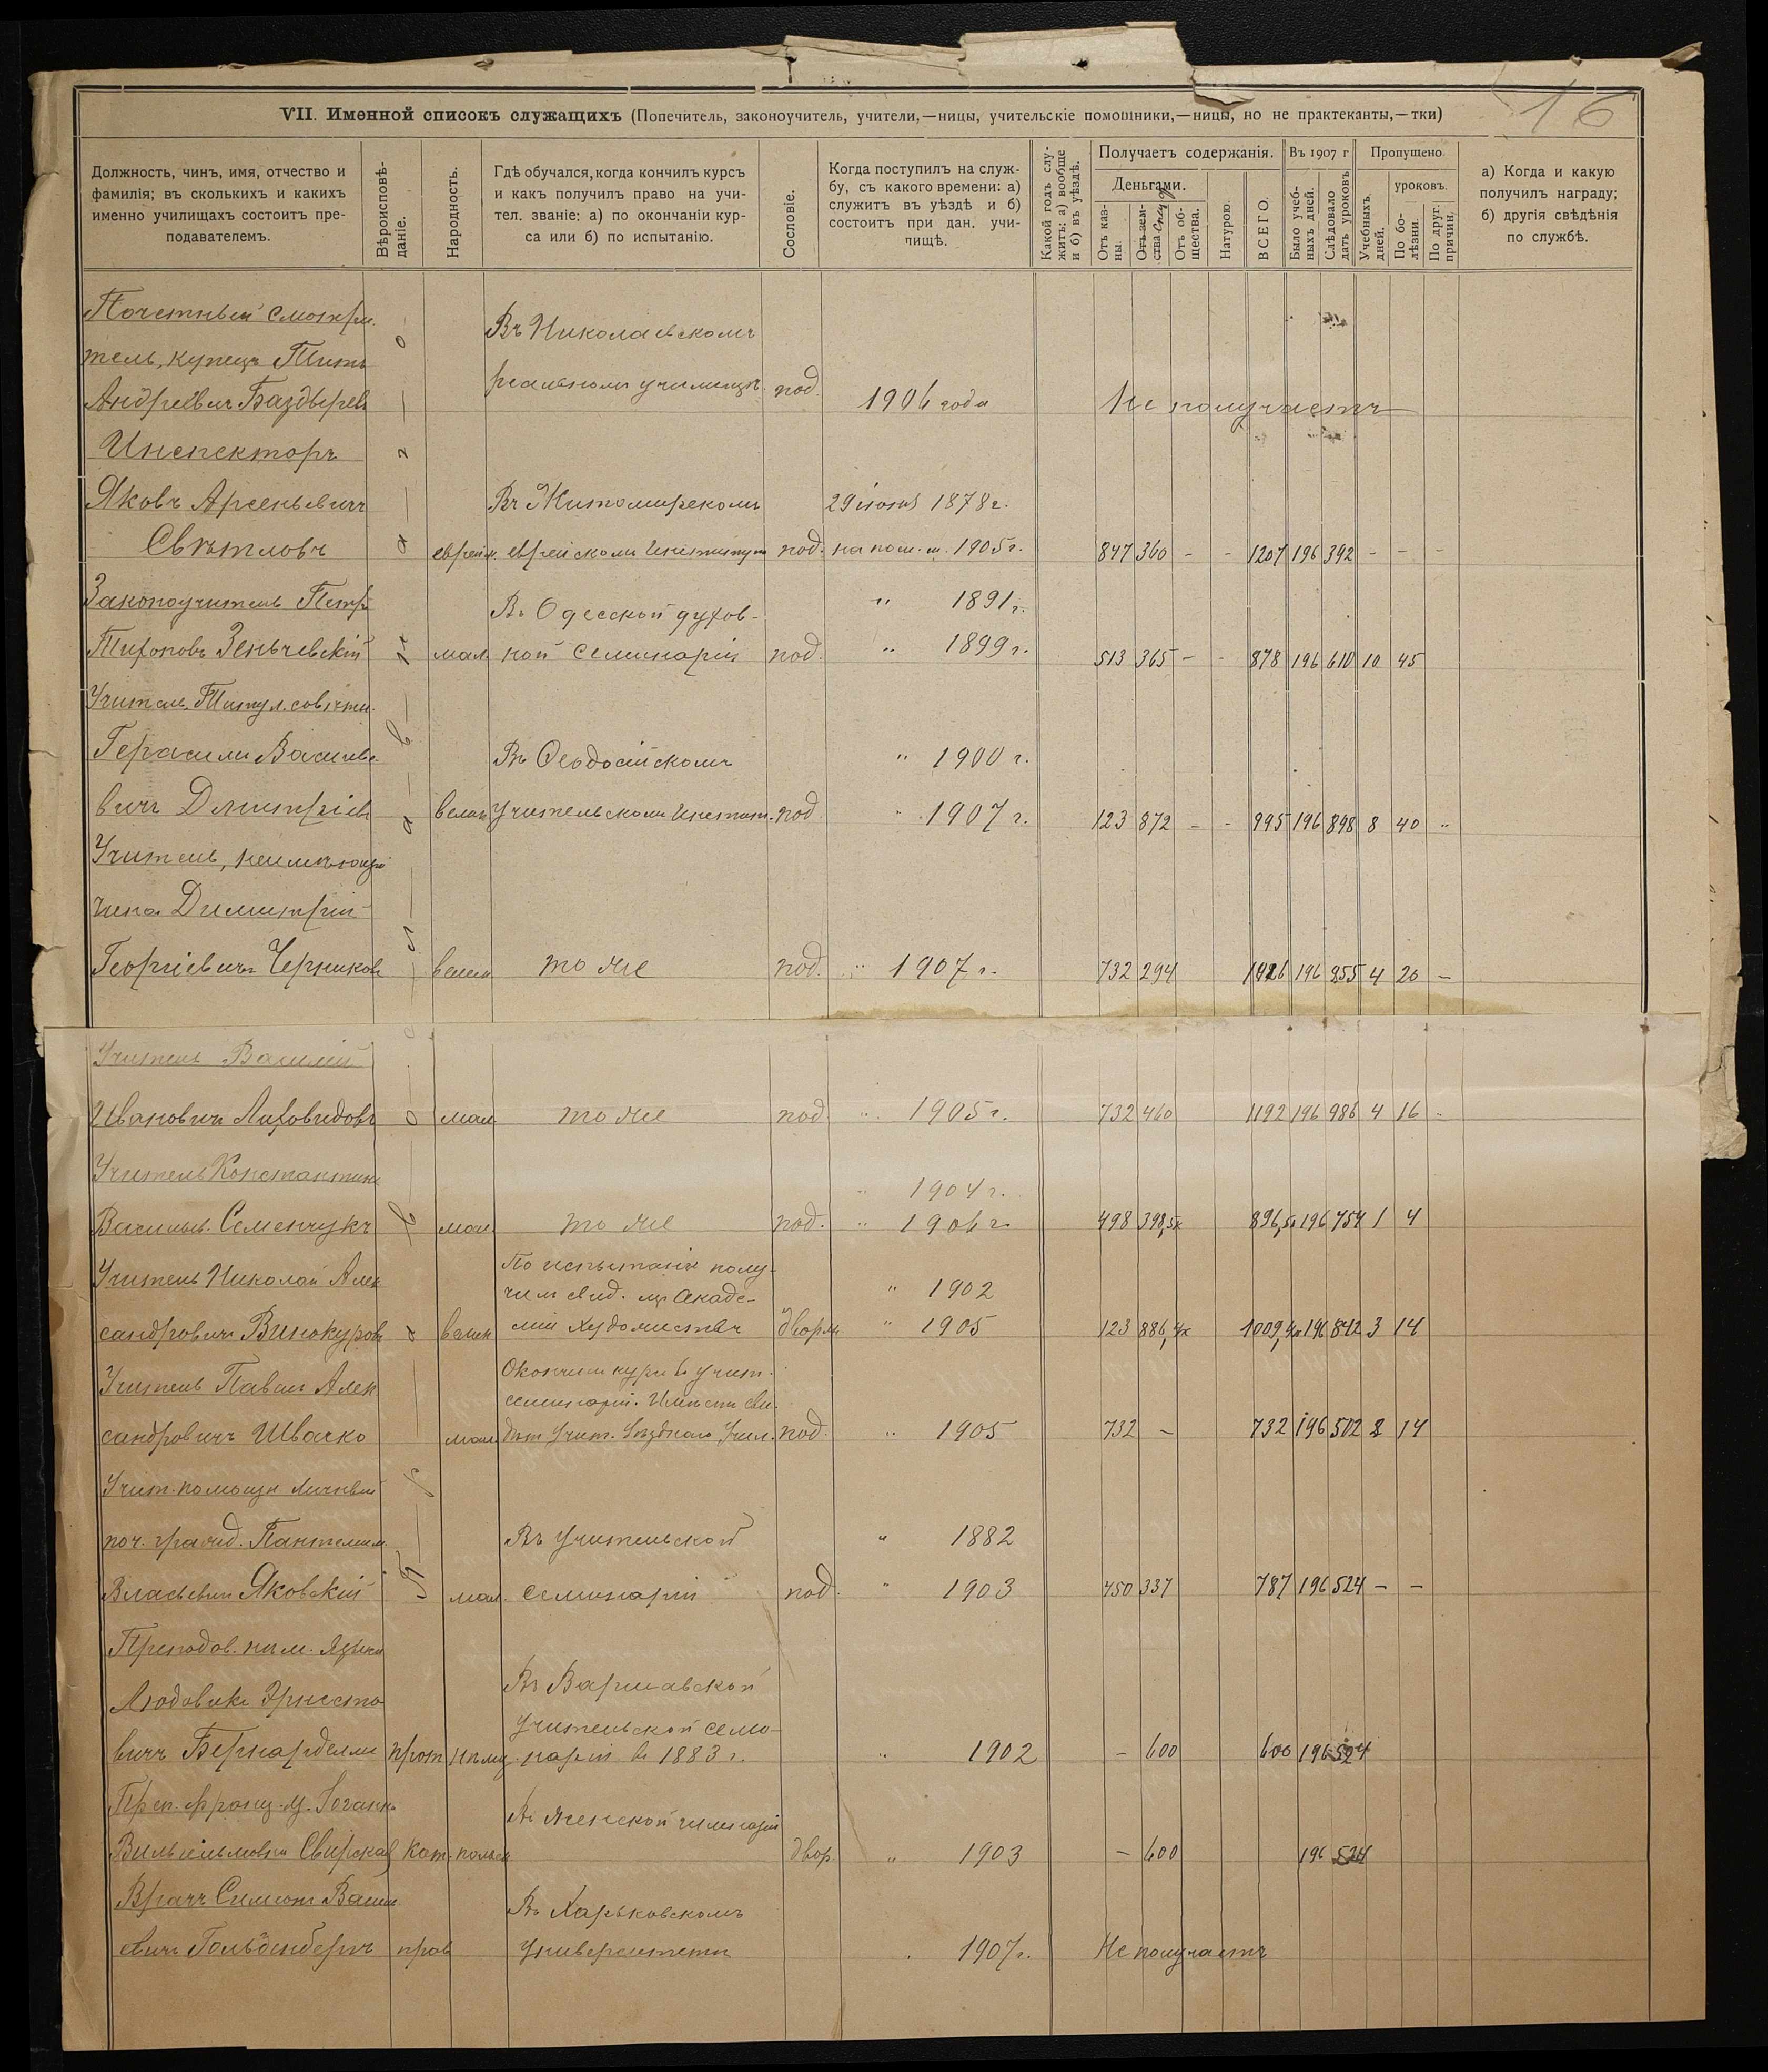 16
VII. Именной списокъ служащихъ (Попечитель, законоучитель, учители,—ницы, учительскіе помощники,—ницы, но не практеканты,—тки)
Должность, чинъ, имя, отчество и
фамилія; въ сколькихъ и какихъ
именно училищахъ состоитъ пре-
подавателемъ.
Вѣроисповѣ-
даніе.
Народность.
Гдѣ обучался, когда кончилъ курсъ
и какъ получилъ право на учи-
тел. званіе: а) по окончаніи кур-
са или б) по испытанію.
Сословіе.
Когда поступилъ на служ-
бу, съ какого времени: а)
служитъ въ уѣздѣ и б)
состоитъ при дан. учи-
лищѣ.
Какой годъ слу-
житъ: а) вообще
и б) въ уѣздѣ.
Получаетъ содержанія.
Деньгами.
Отъ каз-
ны.
Отъ зем-
ства
Отъ об-
щества.
Натурою.
ВСЕГО.
Въ 1907 г
Было учеб-
ныхъ дней.
Слѣдовало
дать уроковъ
Пропушено
Учебныхъ
дней.
уроковъ.
По бо-
лѣзни.
По друг.
причин.
а) Когда и какую
получилъ награду;
б) другія свѣдѣнія
по службѣ.
Почетный смотри-
тель, купецъ Титъ
Андреевичъ Баздыревъ
Въ Николаевскомъ
реальномъ училищѣ
под.
1906 года
Не получаетъ
Инспекторъ
Яковъ Арсеньевичъ
Свѣтловъ
еврейск.
Въ Житомирскомъ
еврейскомъ Институт
под.
29 іюня 1878 г.
1905 г.
847 360 - - 1207 196 392 - - -
Законоучитель Петръ
Тихоновъ Зеньчевскій
мал.
Въ Одесской духов-
ной Семинаріи
под.
" 1891 г.
" 1899 г.
513 365 - - 878 196 610 10 45
Учитель, Титул. совѣтн.
Герасимъ Василье-
вичъ Дмитріевъ
велик
Въ Ѳеодосійскомъ
Учительскомъ Инстит.
под
" 1900 г.
" 1907 г.
123 872 - - 995 196 898 8 40 "
Учитель, неимѣющій
чина Димитрій
Георгіевичъ Черниковъ
велик
то же
под.
" 1907 г.
732 294 1026 196 855 4 20 -
Учитель Василій
Ивановичъ Лиховидовъ
мал
то же
под
" 1905 г.
732 460 1192 196 986 4 16 "
Учитель Константинъ
Васильев. Семенчукъ
мал.
то же
под.
" 1904 г.
" 1906 г.
498 398,5к 896,5к 196 754 1 4
Учитель Николай Алек
сандровичъ Винокуровъ
велик
По испытанію полу-
чилъ свид. изъ Акаде-
міи Художествъ
дворян
" 1902
" 1905
123 886,4к 1009,4к 196 842 3 14
Учитель Павелъ Алек
сандровичъ Швачко
мал.
Окончилъ курсъ въ учит.
семинаріи. Имѣетъ сви-
дѣт Учит. Уѣзднаго Учил.
под.
" 1905
732 - 732 196 502 2 14
Учит. помощн личный
поч. гражд. Пантелеим.
Власьевич Яковскій
мал.
Въ Учительской
семинаріи
под.
" 1882
" 1903
450 337 787 196 524 - -
Преподов. нѣм. языка
Людовикъ Эрнесто-
вичъ Бернарделли
прот
нѣмец
Въ Варшавской
Учительской семи-
наріи въ 1883 г.
" 1902
- 600 600 196 524
Преп. Франц. яз. Іоганна
Вильгельмовна Свирская
Кат.
польск
Въ женской гимназіи
двор
" 1903
- 600 196 524
Врачъ Симонъ Василь
евичъ Гольденбергъ
прав
Въ Харьковскомъ
Университетѣ
" 1907 г.
Не получаетъ